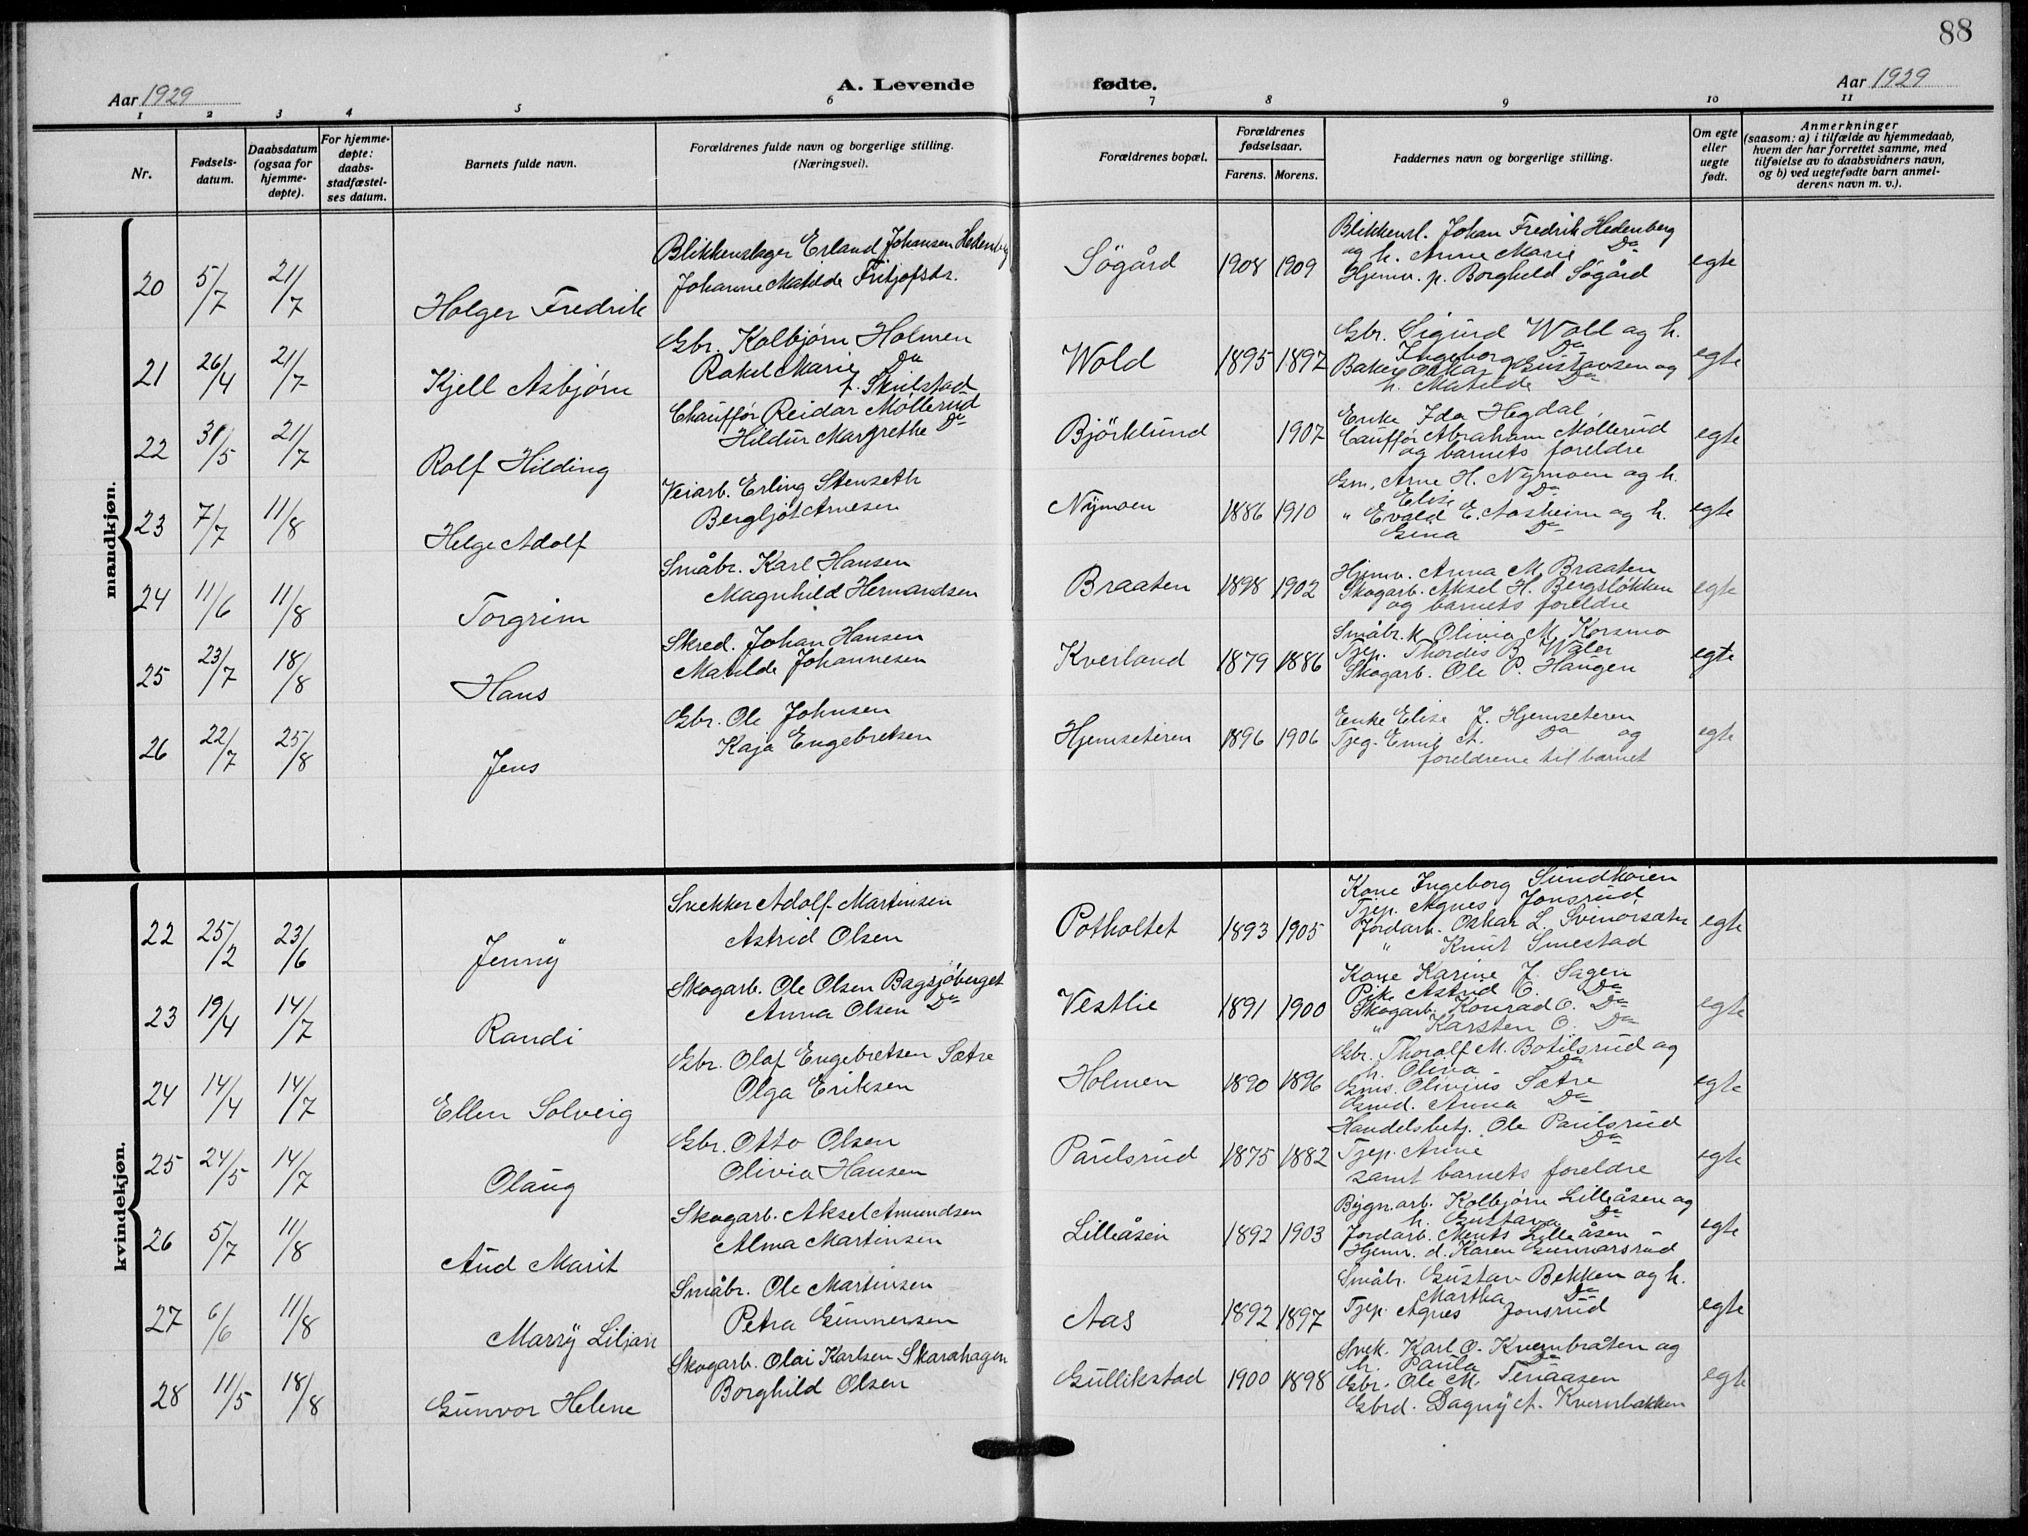 88
Aar 1929 A. Levende fødte. Aar 1929
1 2 3 4 5 6 7 8 9 10 11
Nr.
Fødsels-
datum.
Daabsdatum
(ogsaa for
hjemme-
døpte).
For hjemme-
døpte:
daabs-
stadfæstel-
ses datum.
Barnets fulde navn.
Forældrenes fulde navn og borgerlige stilling.
(Næringsvei).
Forældrenes bopæl.
Forældrenes
fødselsaar.
Farens. Morens.
Faddernes navn og borgerlige stilling.
Om egte
eller
uegte
født.
Anmerkninger
(saasom: a) i tilfælde av hjemmedaab,
hvem der har forrettet samme, med
tilføielse av to daabsvidners navn,
og b) ved uegtefødte barn anmel-
derens navn m. v.).
mandkjøn.
20 5/7 21/7 Holger Fredrik
Blikkenslager Erland Johansen Hedenberg
Johanne Matilde Fritjofsdr.
Søgård 1908 1909
Blikkensl. Johan Fredrik Hedenberg
og h. Anne Marie Do
Hjemv. p. Borghild Søgård
egte
21 26/4 21/7 Kjell Asbjørn
Gbr. Kolbjørn Holmen
Rakel Marie Do
f. Skulstad
Wold 1895 1892
Gbr. Sigurd Woll og h.
Ingeborg Do
Baker Oskar Gustavsen og
h. Matilde Do
egte
22 31/5 21/7 Rolf Hilding
Chauffør Reidar Møllerud
Hildur Margrethe Do
Björklund 1907
Enke Ida Hegdal
Cauffør Abraham Møllerud
og barnets foreldre
egte
23 7/7 11/8 Helge Adolf
Veiarb. Erling Stenseth
Bergljot Arnesen
Nymoen 1886 1910
Gm. Arne H. Nymoen og h.
Elise Do
" Evald E. Aasheim og h.
Gina Do
egte
24 11/6 11/8 Torgrim
Småbr. Karl Hansen
Magnhild Hermandsen
Braaten 1898 1902
Hjemv. Anna M. Braaten
Skogarb. Aksel H. Bergsløkken
og barnets foreldre
egte
25 23/7 18/8 Hans
Skred. Johan Hansen
Matilde Johannesen
Kverland 1879 1886
Småbr. k Olivia M. Korsmo
Tjep. Thordis B. Waler
Skogarb. Ole P. Haugen
egte
26 22/7 25/8 Jens
Gbr. Ole Johnsen
Kaja Engebretsen
Hjemseteren 1896 1906
Enke Elise J. Hjemseteren
Tjeg. Emil A. Do og
foreldrene til barnet
egte
kvindekjøn.
22 25/2 23/6 Jenny
Snekker Adolf Martinsen
Astrid Olsen
Potholtet 1893 1905
Kone Ingeborg Sundkøien
Tjep. Agnes Jonsrud
Jordarb. Oskar L. Svenorsæter
" Knut Smestad
egte
23 19/4 14/7 Randi
Skogarb. Ole Olsen Bagsjøberget
Anna Olsen Do
Vestlie 1891 1900
Kone Karine J. Sagen
Pike Astrid O. Do
Skogarb. Konrad O. Do
" Karsten O. Do
egte
24 14/4 14/7 Ellen Solveig
Gbr. Olaf Engebretsen Sætre
Olga Eriksen
Holmen 1890 1896
Gbr. Thoralf M. Botilsrud og
h. Oliva Do
Gms. Olivius Sætre
Gmd. Anna Do
egte
25 24/5 14/7 Olaug
Gbr. Otto Olsen
Olivia Hansen
Paulsrud 1875 1882
Handelsbetj. Ole Paulsrud
Tjep. Anne Do
samt barnets foreldre
egte
26 5/7 11/8 Aud Marit
Skogarb. Aksel Amundsen
Alma Martinsen
Lilleåsen 1892 1903
Bygn.arb. Kolbjørn Lilleåsen og
h. Gustava Do
Jordarb. Ments Lilleåsen
Hjemv. d. Karen Gunnarsrud
egte
27 6/6 11/8 Marry Liljan
Småbr. Ole Martinsen
Petra Gunnersen
Aas 1892 1897
Småbr. Gustav Bekken og h.
Martha Do
Tjep. Agnes Jonsrud
egte
28 11/5 18/8 Gunvor Helene
Skogarb. Olai Karlsen Skarahagen
Borghild Olsen
Gullikstad 1900 1898
Snek. Karl O. Kvernbråten og
h. Paula Do
Gbr. Ole M. Teraasen
Gbrd. Dagny A. Kvernbakken
egte